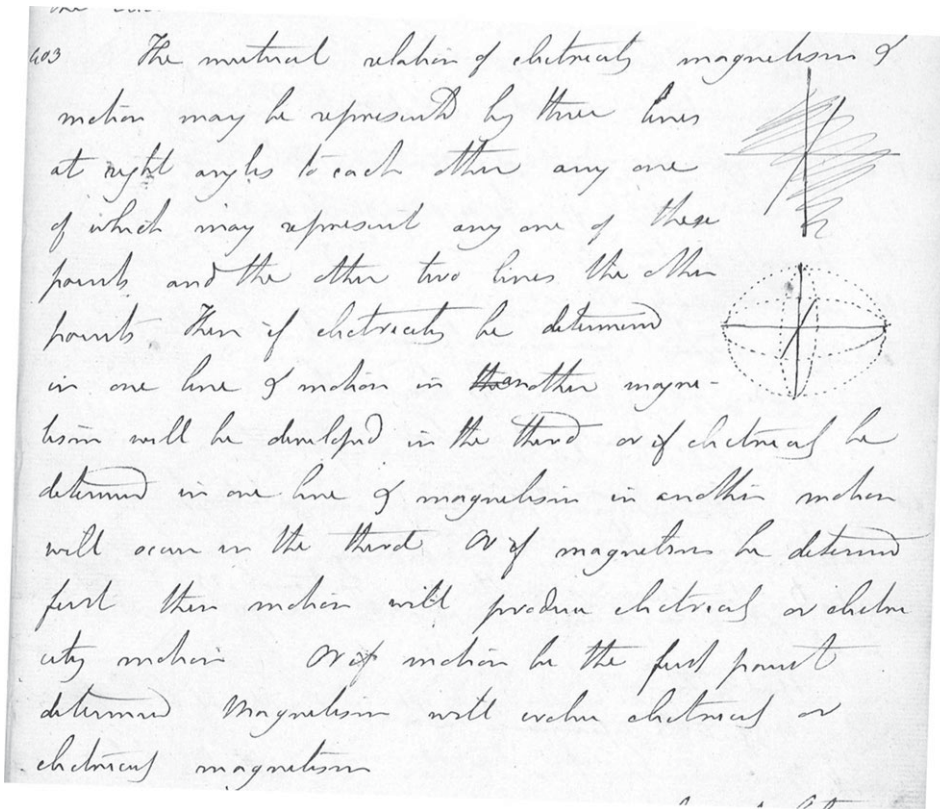 403 The mutual relation of electricity magnetism &
motion may be represented by three lines
at right angles to each other any one
of which may represent any one of these
points and the other two lines the other
points. Then if electricity be determined
in one line & motion in another magne-
tism will be developed in the third or if electricity be
determined in one line & magnetism in another motion
will occur in the third Or if magnetism be determined
first then motion will produce electricity or electri
city motion Or if motion be the first point
determined Magnetism will evolve electricity or
electricity magnetism